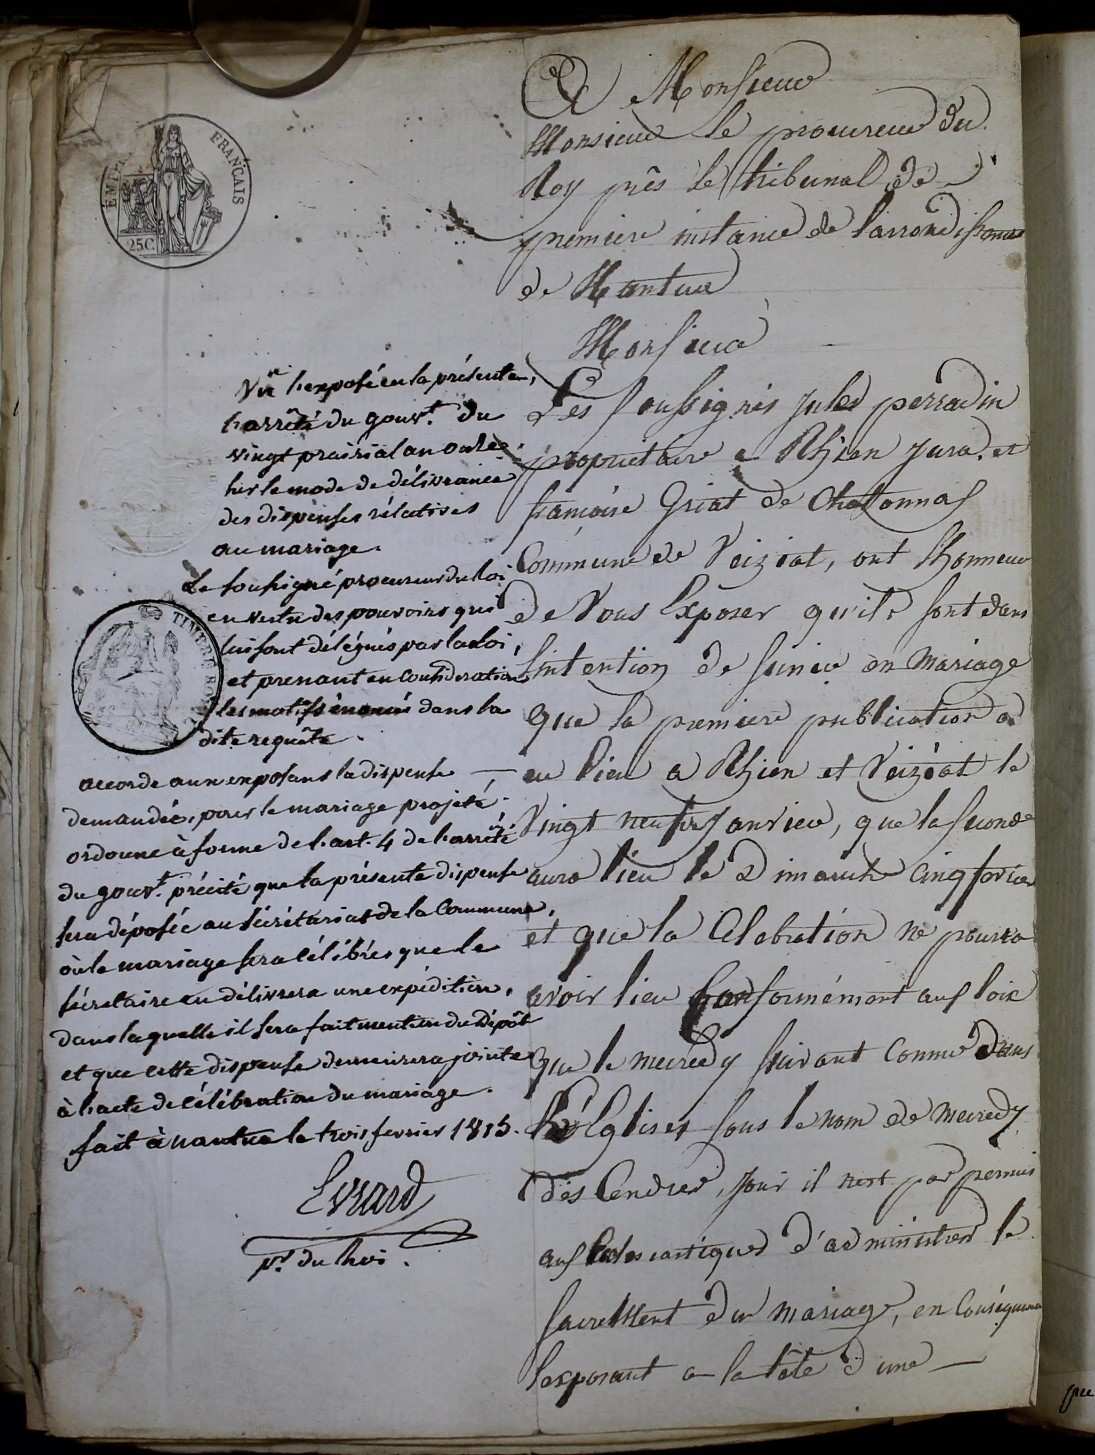 A Monsieur
Monsieur le procureur du
Roy près le tribunal de
premiere instance de larrondissement
de Nantua
Monsieur
Les soussignés jules perradin
propriétaire a Rhien jura, et
francoise Griat de Chatonnas
Commune de Veiziat, ont lhonneur
de Vous Exposer qu'ils sont dans
lintention de sunir en mariage
que la premiere publication a
eu lieu a Rhien et Veiziat le
Vingt neuf janvier, que la seconde
aura lieu le Dimanche cinq fevrier
et que la Celebration ne pourra
avoir lieu Conformément aux loix
que le mecredy suivant Connu dans
les Eglises sous le nom de mecredy
des Cendres, jour il nest pas permis
aux Eclesiastiques d'administrer le
sacrement du mariage, en Conséquence
lexposant a la tête d'une
EMPIRE FRANÇAIS
25C.
Vu l'exposé en la présente,
l'arrêté du gouvt. du
vingt prairial an onze,
sur le mode de délivrance
des dispenses rélatives
au mariage.
Le soussigné procureur du Roi
en vertu des pouvoirs qui
lui sont délégués par la loi,
et prenant en considération
les motifs énoncés dans la
dite requête.
TIMBRE ROYAL
accorde aux exposans la dispense
demandée, pour le mariage projeté.
ordonne à forme de l'art. 4 de l'arrêté
du gouvt. précité que la présente dispense
sera déposée au sécrétariat de la Commune,
où le mariage sera célébré, que le
sécretaire en délivrera une expédition,
dans laquelle il sera fait mention du Dépôt
et que cette dispense demeurera jointe
à l'acte de célébration du mariage.
fait à nantua le trois fevrier 1815.
Evrard
pr. du Roi.